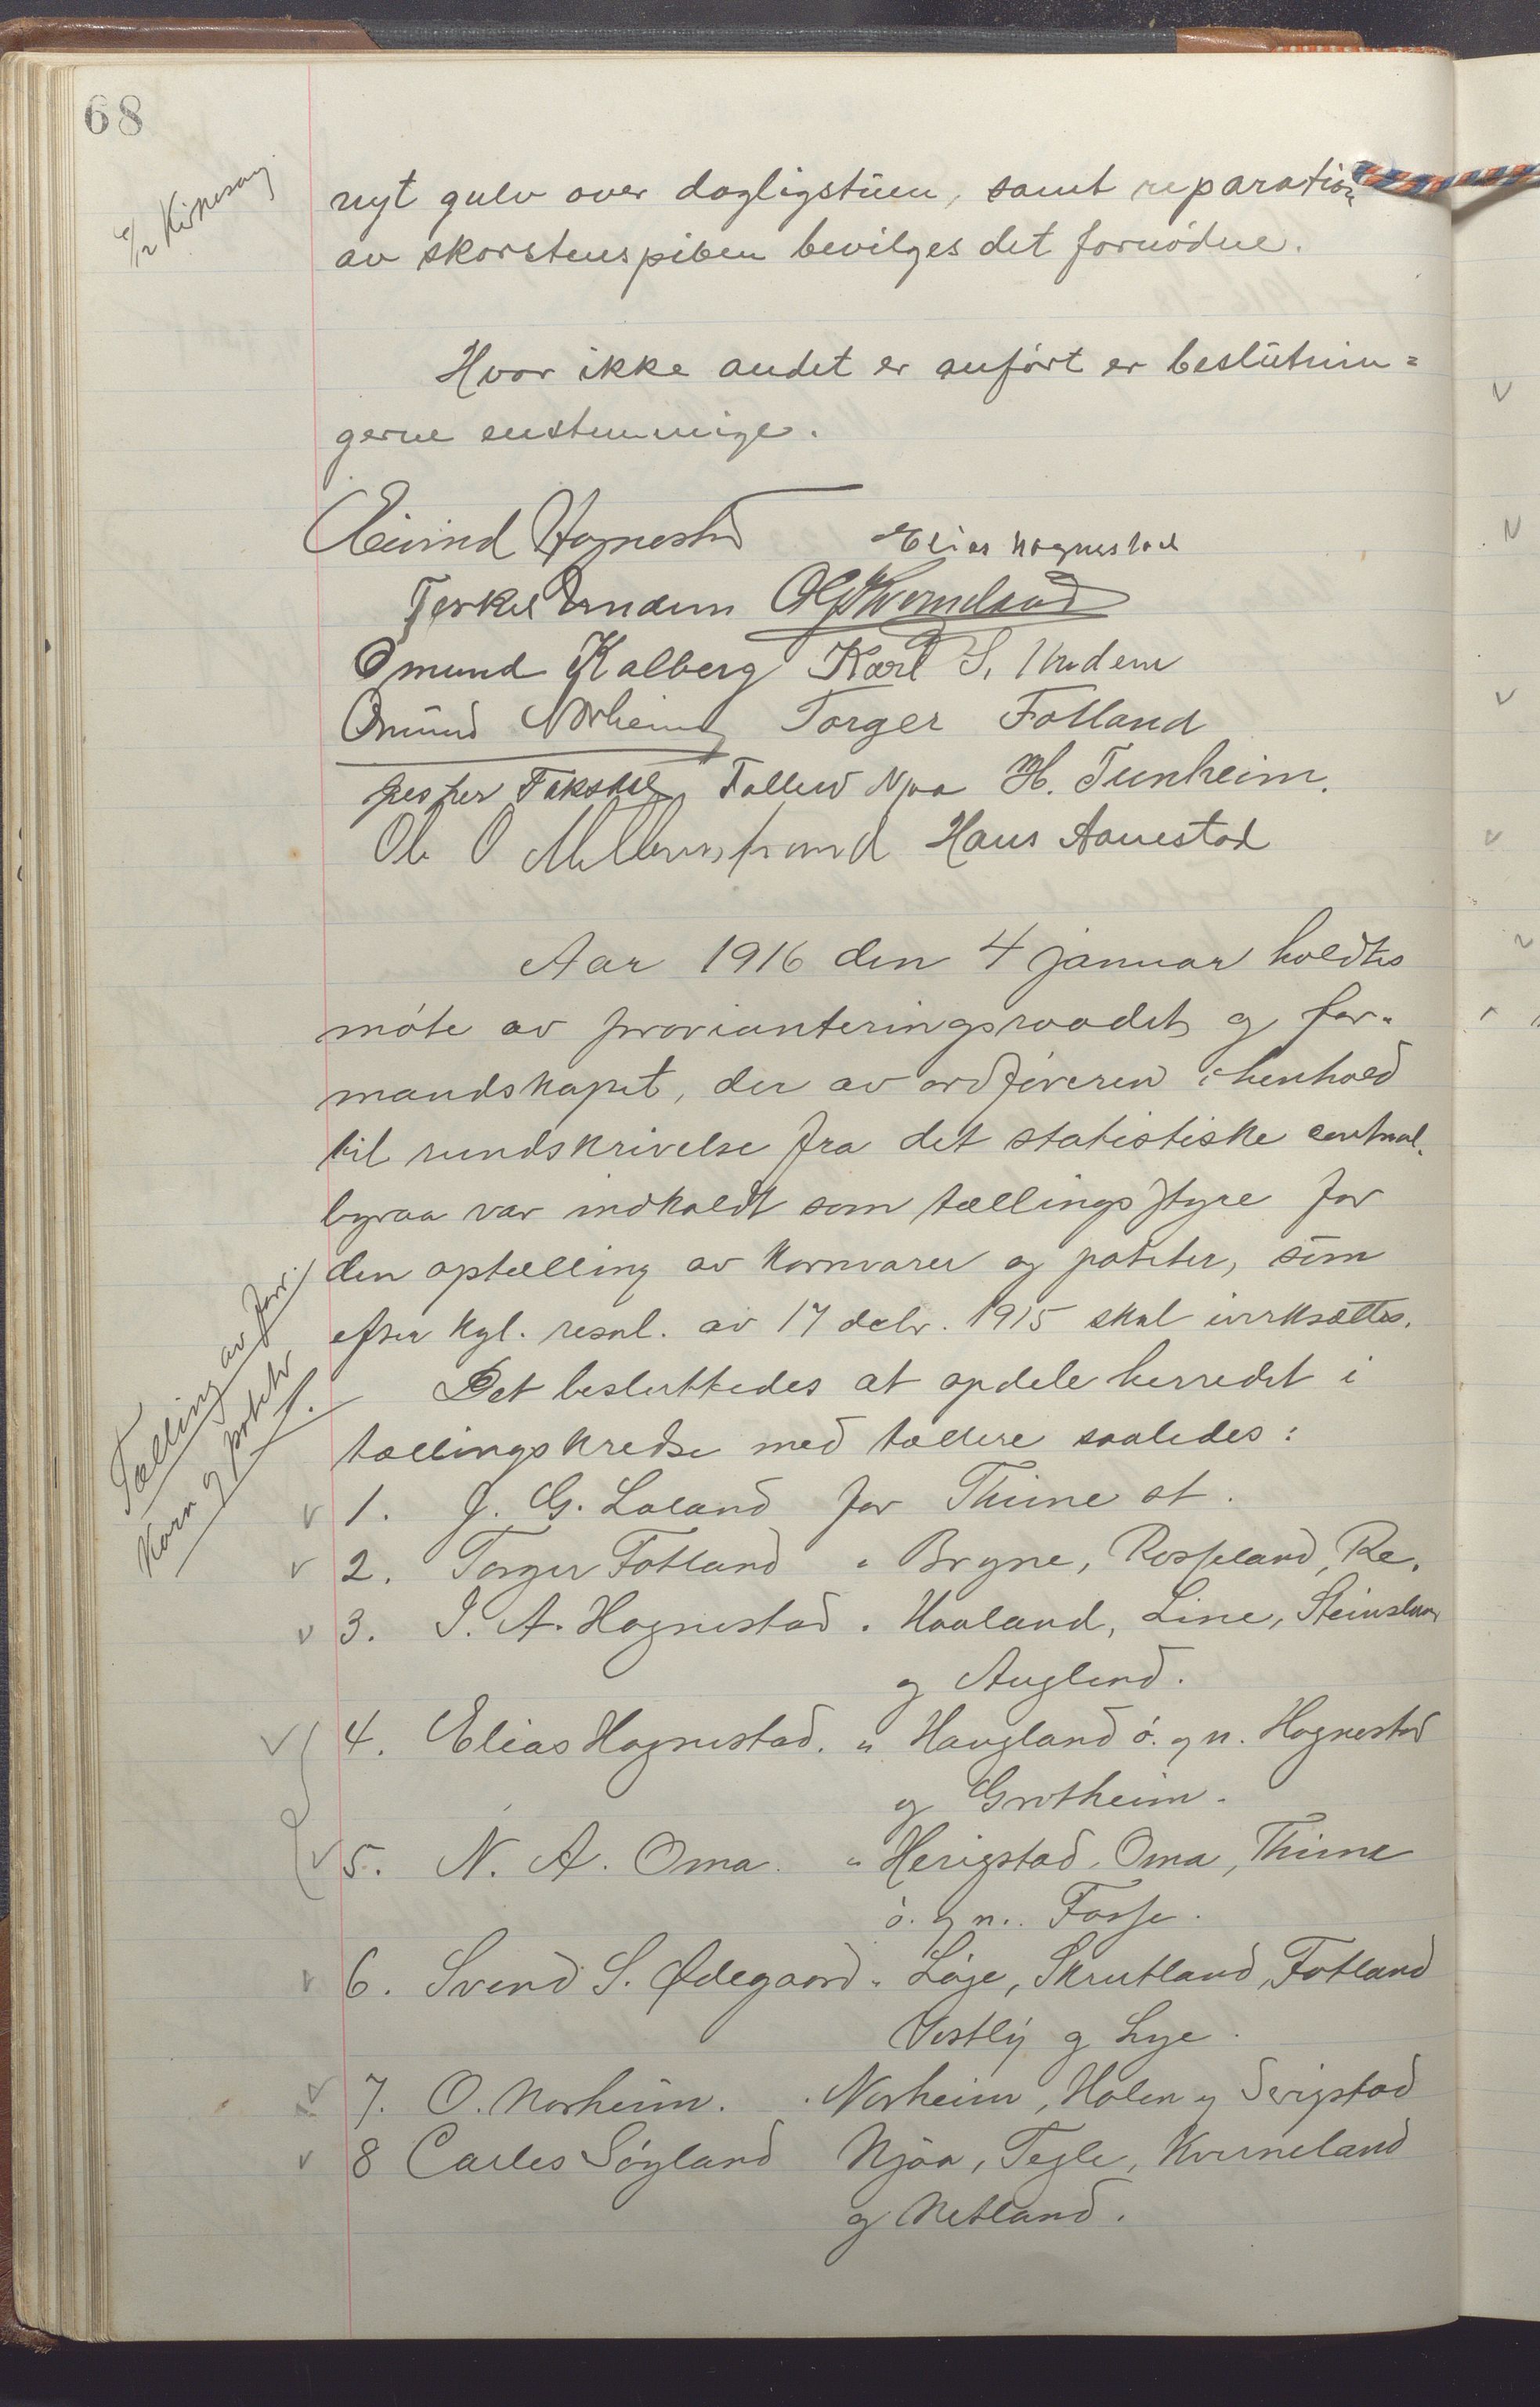 68
nyt gulv over dagligstuen, samt reparation
av skorstenspiben bevilges det fornødne.
Hvor ikke andet er anført er beslutnin=
gerne enstemmige.
Eivind Hognestad Elias Hognestad
Terkel
Omund Kalberg Karl S. Undem
Omund Norheim Torger Fotland
Jesper Tollew Njaa H. Tunheim.
Ole O Hans Aanestad
Aar 1916 den 4 januar holdtes
møte av provianteringsraadet og for-
mandskapet, der av ordføreren i henhold
til rundskrivelse fra det statistiske central-
byraa var indkaldt som tællingsstyre for
den optælling av kornvarer og poteter, som
efter kgl. resol. av 17 debr. 1915 skal iverksættes.
Tælling av
korn og poteter
Det besluttedes at opdele herredet i
tællingskredse med tællere saaledes:
1. J. G. Laland for Thime st.
2. Torger Fotland " Bryne, Rosseland, Re.
3. I. A. Hognestad " Haaland, Line, Steinsland
og Auglend.
4. Elias Hognestad. " Haugland ó. og n. Hognestad
og Grotheim.
5. N. A. Oma. " Herigstad, Oma, Thime
ó. og n. Fosse.
6. Svend S. Ødegaard " Løge, Skrutland, Fotland
Vestly og Lye.
7. O. Norheim. " Norheim, Holen og Serigstad
8 Carles Söyland Njåa, Tegle, Kverneland
og Netland.